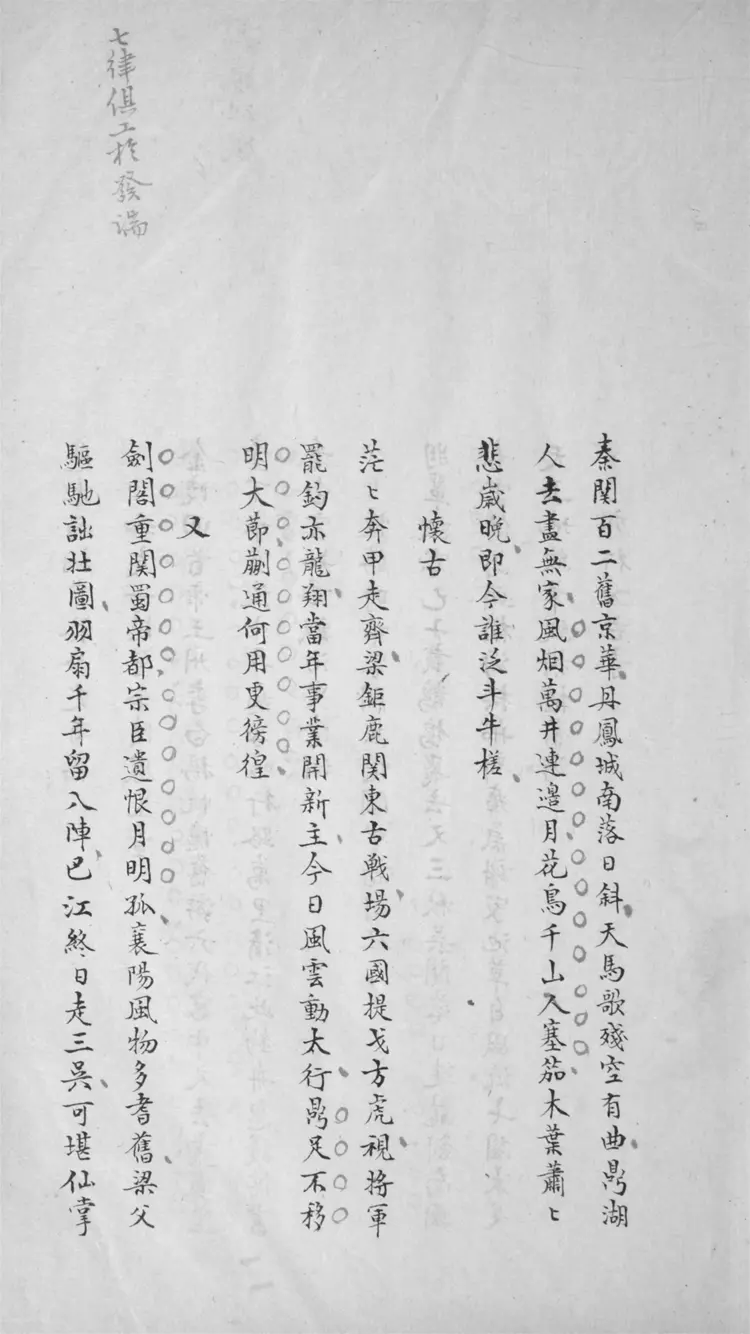 七律俱工於發端
秦関百二舊京華丹鳳城南落日斜天馬歌殘空有曲鼎湖
人去盡無家風烟萬井連邉月花鳥千山入塞笳木葉蕭〻
悲歲晩即今誰泛斗牛槎
懷古
茫〻奔甲走齊梁鉅鹿関東古戰場六國提戈方虎視將軍
罷釣亦龍翔當年事業開新主今日風雲動太行鼎足不移
明大莭蒯通何用更徬徨
又
劍閣重関蜀帝都宗臣遺恨月明孤襄陽風物多耆舊梁父
驅馳詘壯圖羽扇千年留八陣巴江終日走三吳可堪仙掌